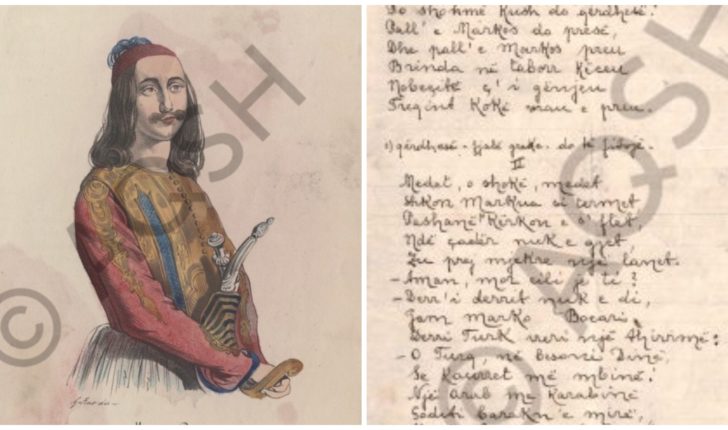 Do shohmë Kush do gërdhesë!
Pall' e Markos do presë,
Dhe pall' e Markos preu
Brinda në taborr kceu
Nobeqitë ç' i gënjeu
Tregint Kokë vrau e preu.
1) gërdhesë - fjalë greke - do të fitojë.
II
Medat, o shokë, medet
Shkon Markua si termet
Pashanë Kërkon e s' flet,
Ndë çadër nuk e gjet,
Zu prej mjekre një lanet.
- Aman, mor cili je ti?
- Derr' i derrit nuk e di,
Jam Marko Boçari.
Derri Turk vuri një thirrmë:
- O Turq, në besoni Dinë,
Se Kaurret më mbinë!
Një Arab me karabinë
Goditi baraku'e mirë,
© AQSH
© AQSH